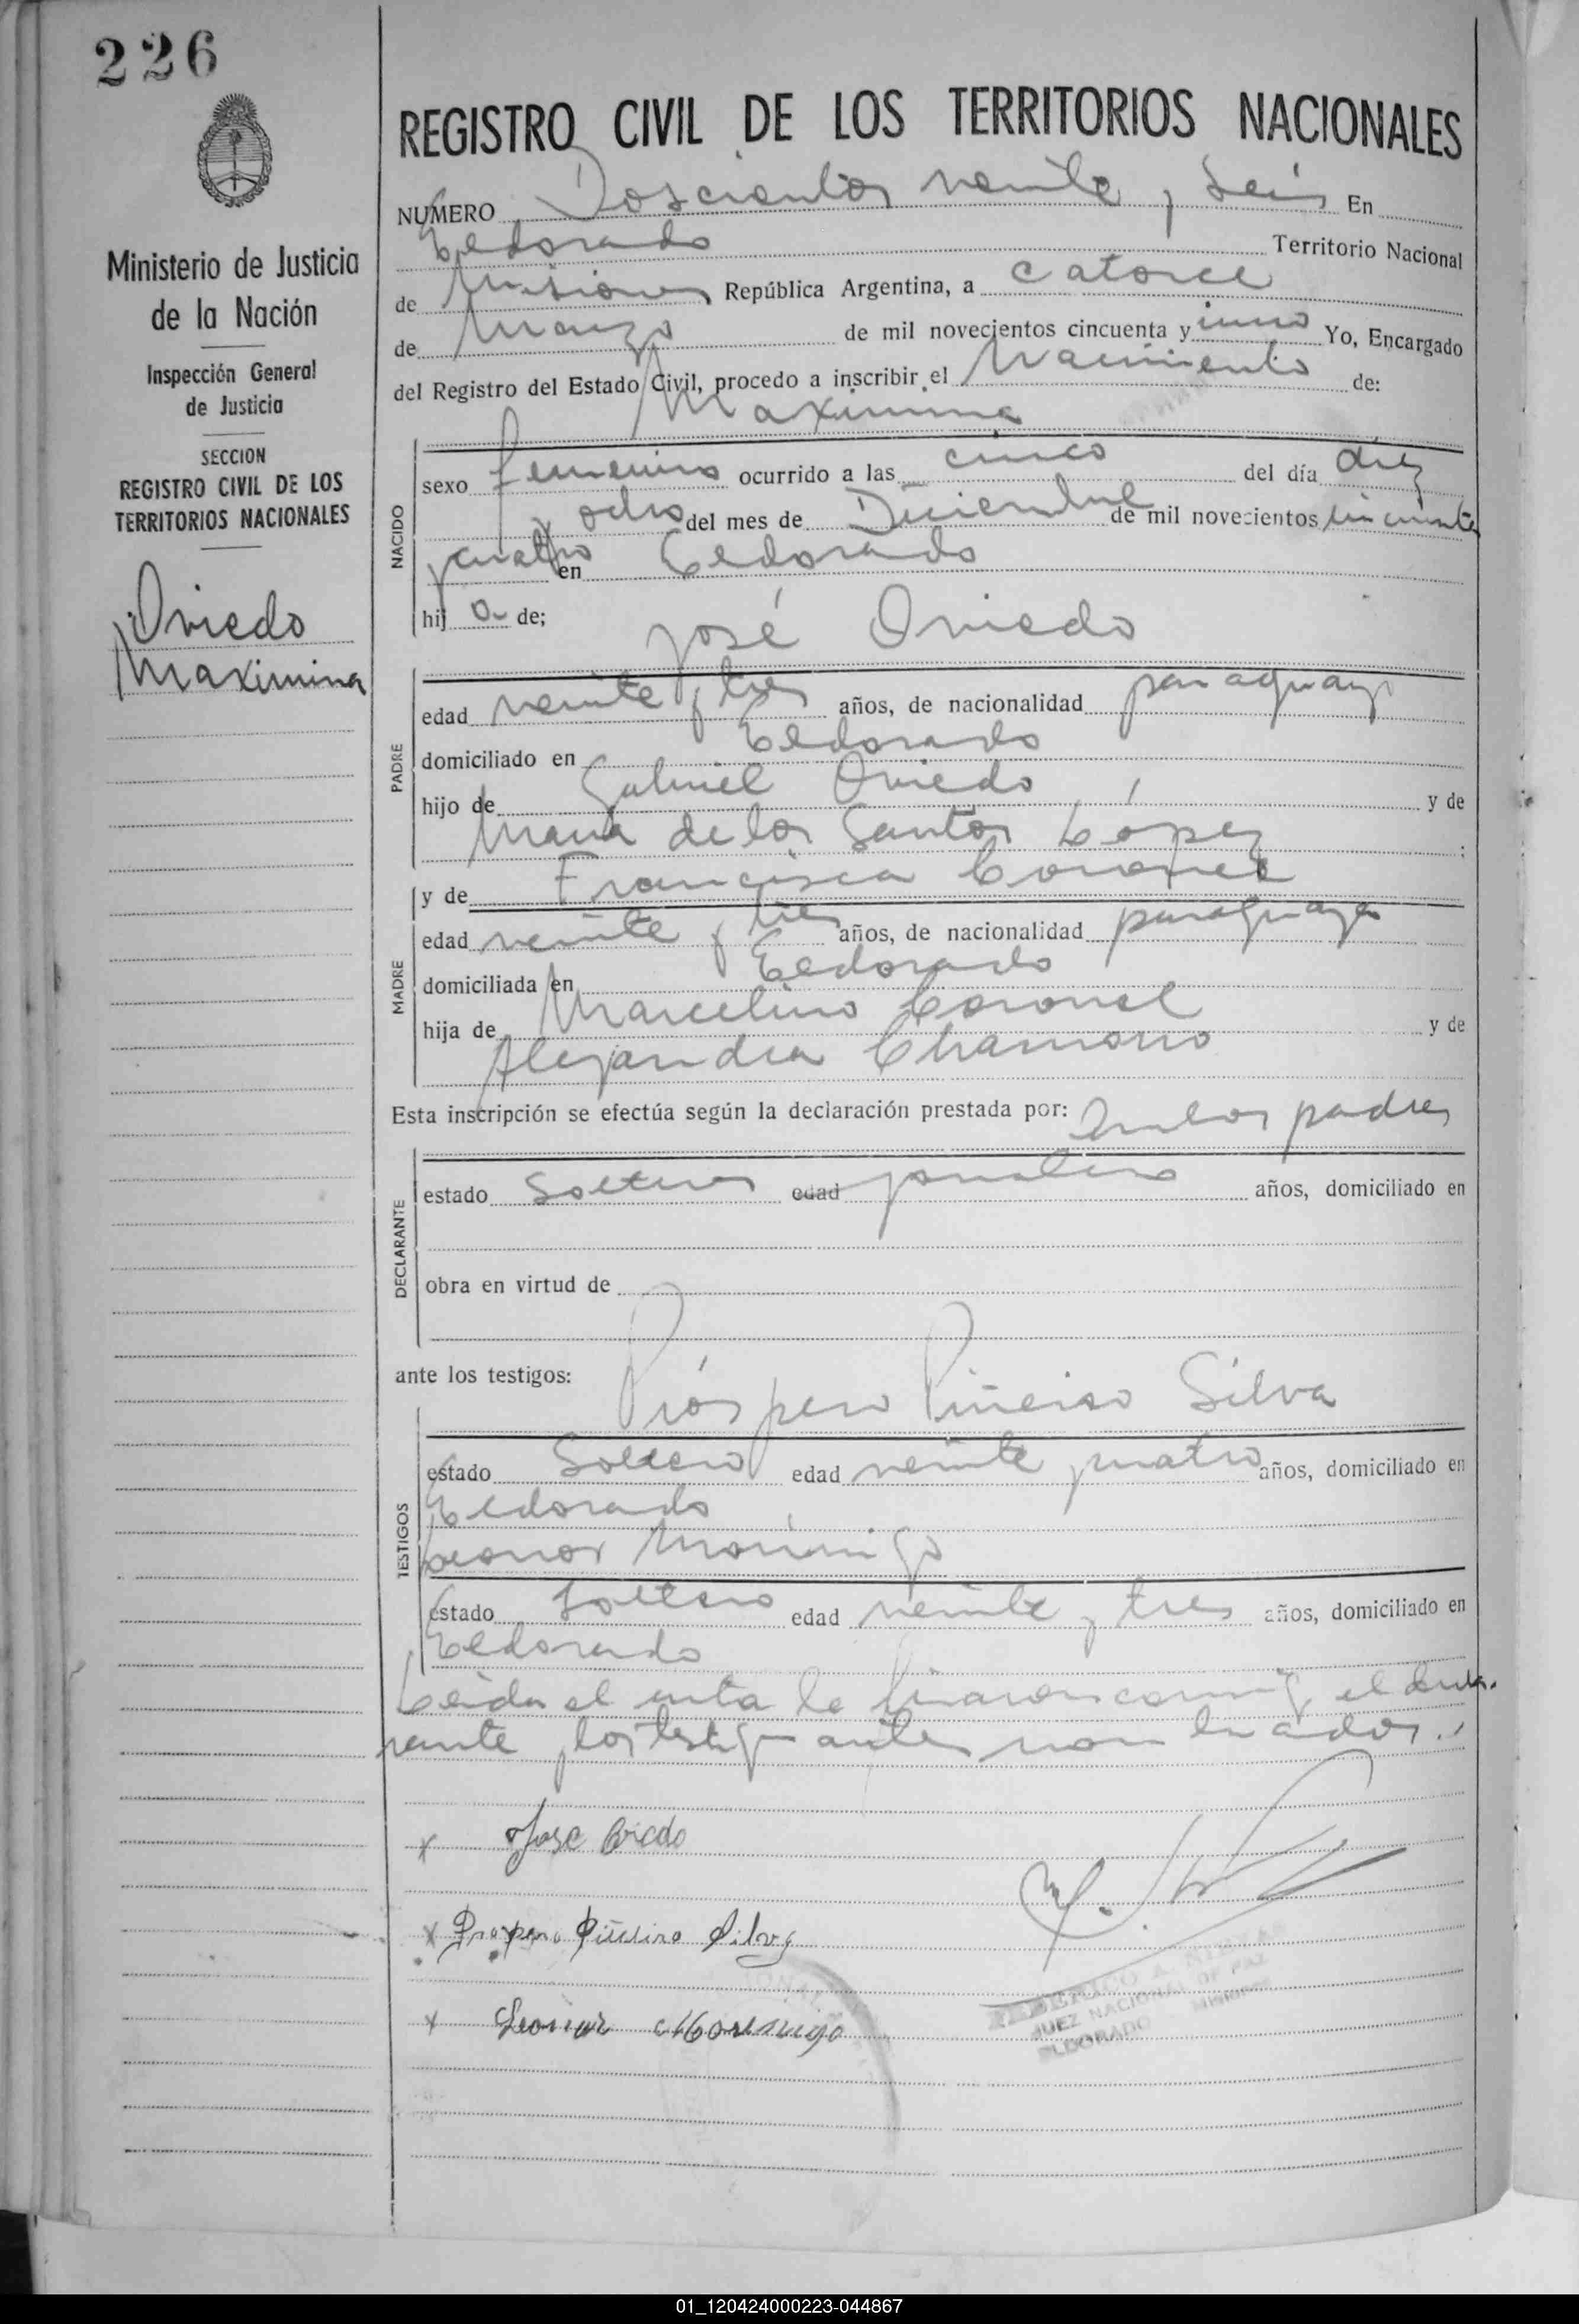 226
Ministerio de Justicia
de la Nación
Inspección General
de Justicia
SECCION
REGISTRO CIVIL DE LOS
TERRITORIOS NACIONALES
Oviedo
Maximina
REGISTRO CIVIL DE LOS TERRITORIOS NACIONALES
NUMERO Doscientos veinte y Seis En
Eldorado Territorio Nacional
de Misiones República Argentina, a catorce
de Marzo de mil novecientos cincuenta y Yo, Encargado
del Registro del Estado Civil, procedo a inscribir el Nacimiento de:
Maximina
NACIDO
sexo femenino ocurrido a las cinco del día diez
y ocho del mes de Diciembre de mil novecientos cincuenta
y cuatro en Eldorado
hij a de;
José Oviedo
PADRE
edad veinte y tres años, de nacionalidad paraguayo
domiciliado en Eldorado
hijo de Gabriel Oviedo y de
Maria de los Santos Lopez ;
y de Francisca Coronel
MADRE
edad veinte y tres años, de nacionalidad paraguaya
domiciliada en Eldorado
hija de Marcelino Coronel y de
Alejandra Chamorro
Esta inscripción se efectúa según la declaración prestada por: Ambos padres
DECLARANTE
estado Solteros edad jornalero años, domiciliado en
obra en virtud de
ante los testigos:
Próspero Piñeiro Silva
TESTIGOS
estado Soltero edad veinte y cuatro años, domiciliado en
Eldorado
Leonor Morinigo
estado Soltero edad veinte y tres años, domiciliado en
Eldorado
Leida el acta la firaron conmigo el decla-
rante y los testigos antes nombrados.
x Jose Oviedo
x Prospero Piñeiro Silva
x Leonor Morinigo
JUEZ NACIONAL DE PAZ
ELDORADO MISIONES
01_120424000223-044867